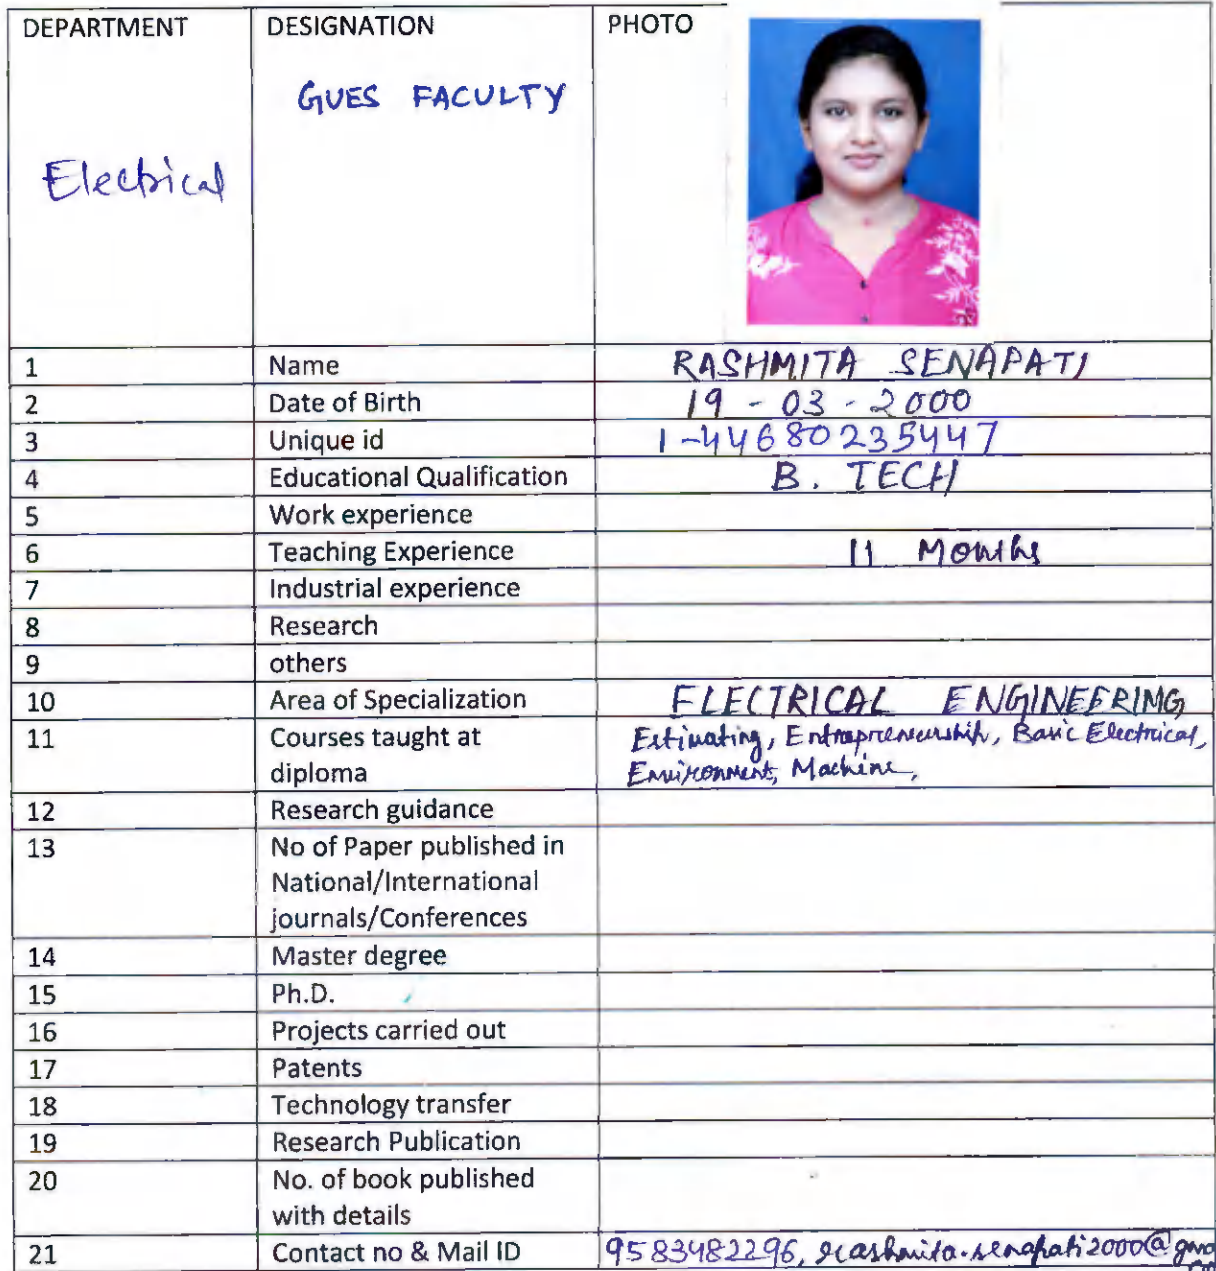 DEPARTMENT DESIGNATION PHOTO
GUES FACULTY
Electrical
1 Name RASHMITA SENAPATI
2 Date of Birth 19 - 03 - 2000
3 Unique id 1-44680235447
4 Educational Qualification B. TECH
5 Work experience
6 Teaching Experience 11 Months
7 Industrial experience
8 Research
9 others
10 Area of Specialization ELECTRICAL ENGINEERING
11 Courses taught at Estimating, Entrapreneurship, Basic Electrical,
diploma Environment, Machine,
12 Research guidance
13 No of Paper published in
National/International
journals/Conferences
14 Master degree
15 Ph.D.
16 Projects carried out
17 Patents
18 Technology transfer
19 Research Publication
20 No. of book published
with details
21 Contact no & Mail ID 9583482296, rashmita.senapati2000@gma